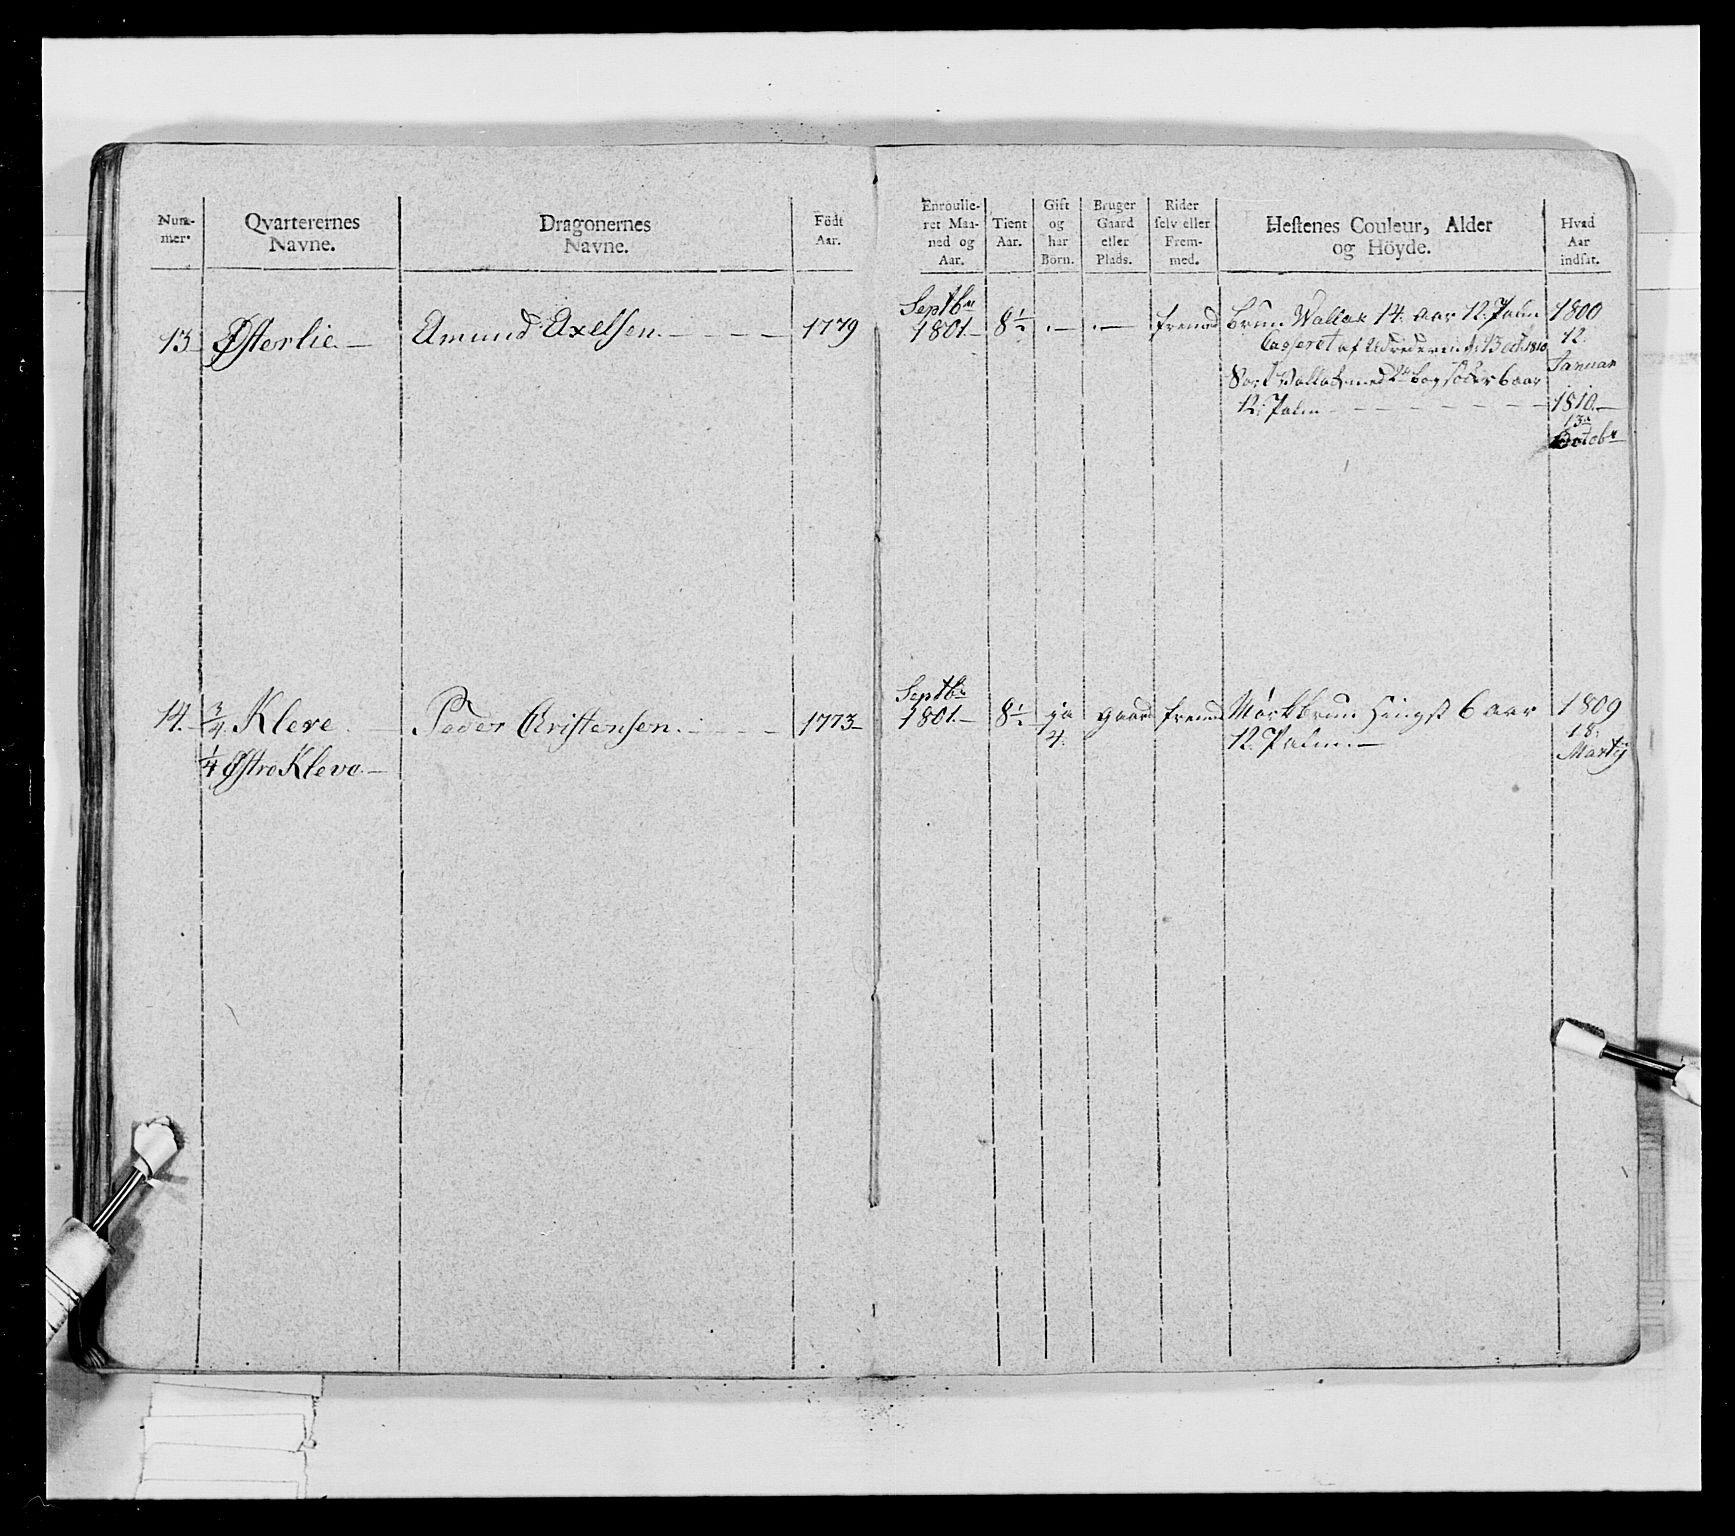 Num-
mer.
Qvarterernes
Navne.
Dragonernes
Navne.
Födt
Aar.
Enroulle-
ret Maa-
ned og
Aar.
Tient
Aar.
Gift
og
har
Börn.
Bruger
Gaard
eller
Plads.
Rider
selv eller
Frem-
med.
Hestenes Couleur, Alder
og Höyde.
Hvad
Aar
indsat.
13 Østerlie.— Amund Axelsen.— — — — 1779
Septbr
1801.— 8½ .— .— fremd
Brun Wallak 14. aar 12. Palm
Casseret af Udrederen d: 13 oct 1810
Sort Vallak med bagsocker 6 aar
12. Palm — — — — — — —
1800
12.
Januar
1810.—
13de
Octobr
14.— ¾ Kleve. — Peder Christensen.— — — — 1773—
¼ Østre Kleve.—
Septbr
1801.— 8½ ja gaard fremd
4.
Mørkbrun Hingst 6 aar
12. Palm.—
1809
18.
Martij